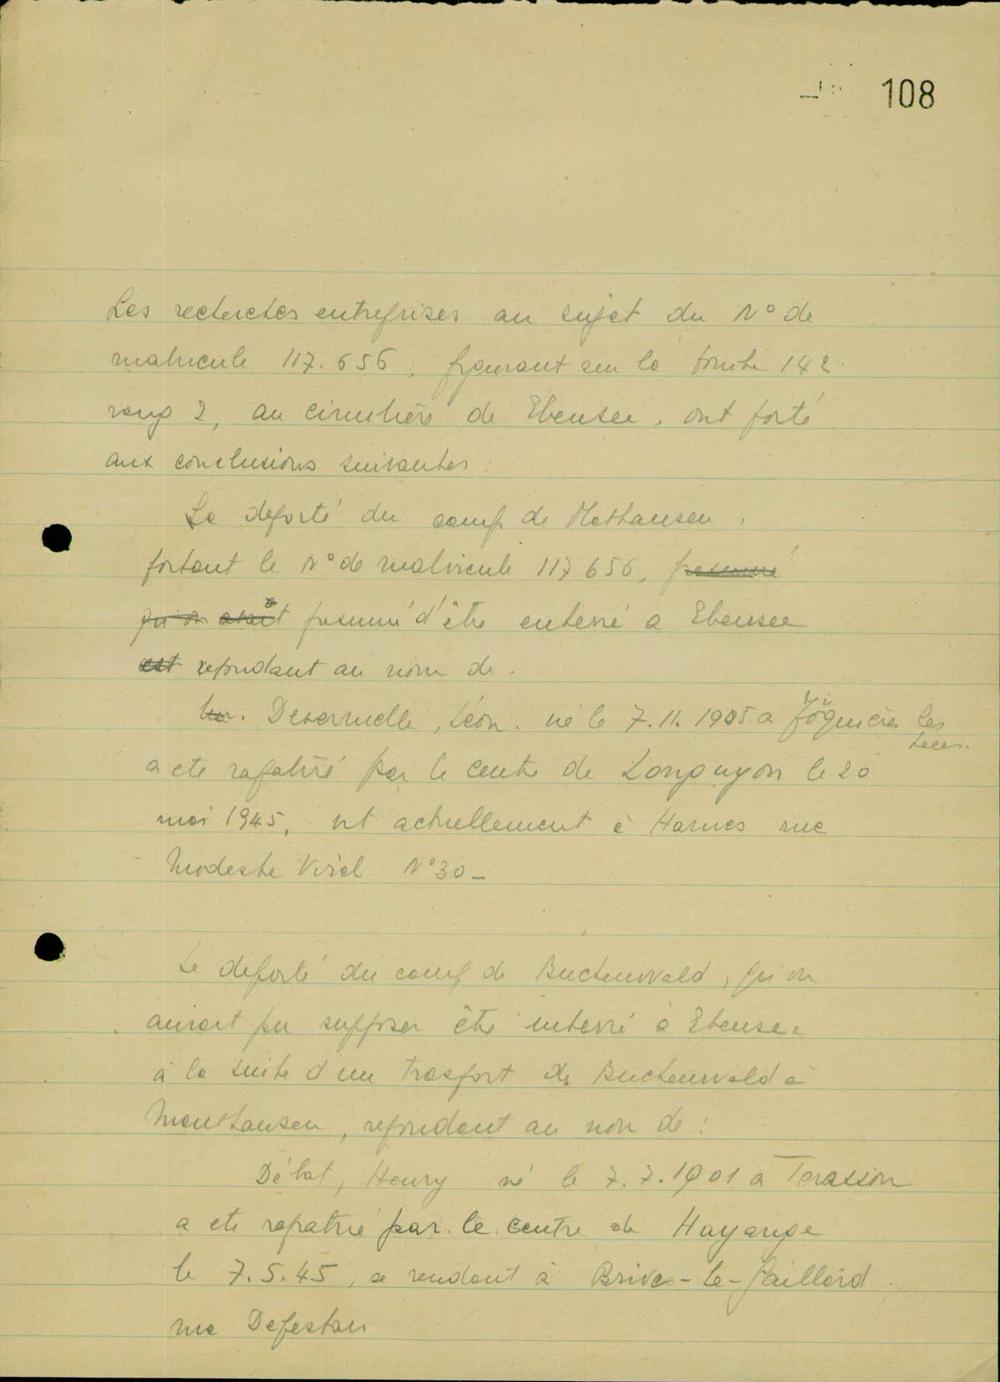 108
Les recherches entreprises au sujet du N° de
matricule 117.656, figurant sur la tombe 142
rang 2, au cimetière de Ebensee, ont porté
aux conclusions suivantes :
Le deporté du camp de Mathausen,
portant le N° de matricule 117 656, presumé
qu'on avait presumé d'être enterré a Ebensee
est repondant au nom de.
Desormelle, Léon. né le 7.11.1905 a les
a ete rapatrié par le centre de Longuyon le 20
mai 1945, vit actuellement à Harnes rue
Modeste Virel N°30 -
Le deporté du camp de Buchenwald, qu'on
aurait pu supposer être enterré à Ebensee
à la suite d'un trasport de Buchenwald à
Mauthausen, repondant au nom de :
Délat, Henry né le 7.7.1901 a Terasson
a ete rapatrié par le centre de Hayange
le 7.5.45, se rendant à Brives-la-Gaillard
rue